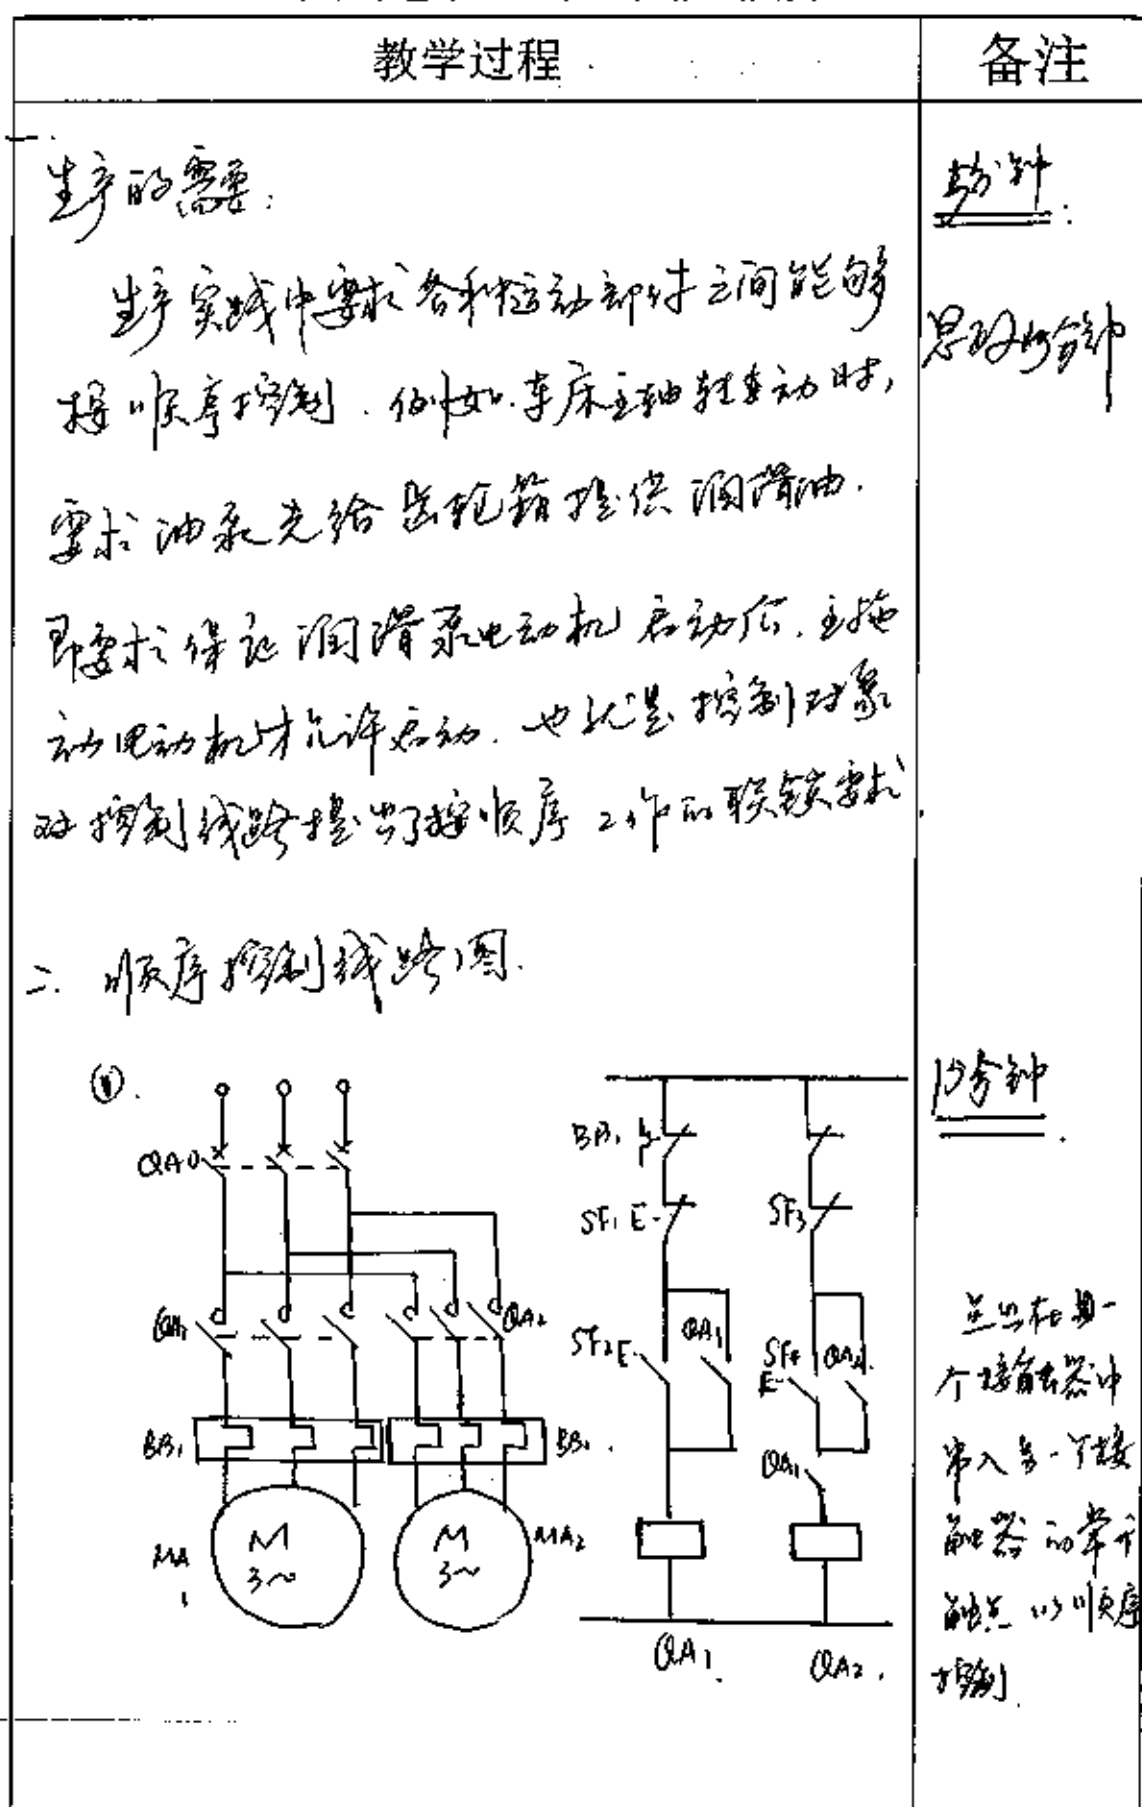 教学过程
备注
一.
生产的需要.
生产实践中要求各种运动部件之间能够
按顺序控制. 例如.车床主轴转动时,
要求油泵先给齿轮箱提供润滑油.
即要求保证润滑泵电动机启动后.主拖
动电动机才允许启动. 也就是控制对象
对控制线路提出了按顺序工作的联锁要求.
二. 顺序控制线路图.
分钟
思政 分钟
QA0
QA1
QA2
BB1
BB1.
MA
1
M
3~
M
3~
MA2
BB1
SF1 E
SF3
SF2 E
QA1
SF4
E
QA2
QA1
QA1
QA2.
15分钟
个接触器中
串入另一个接
触器的常开
触点 顺序
控制.